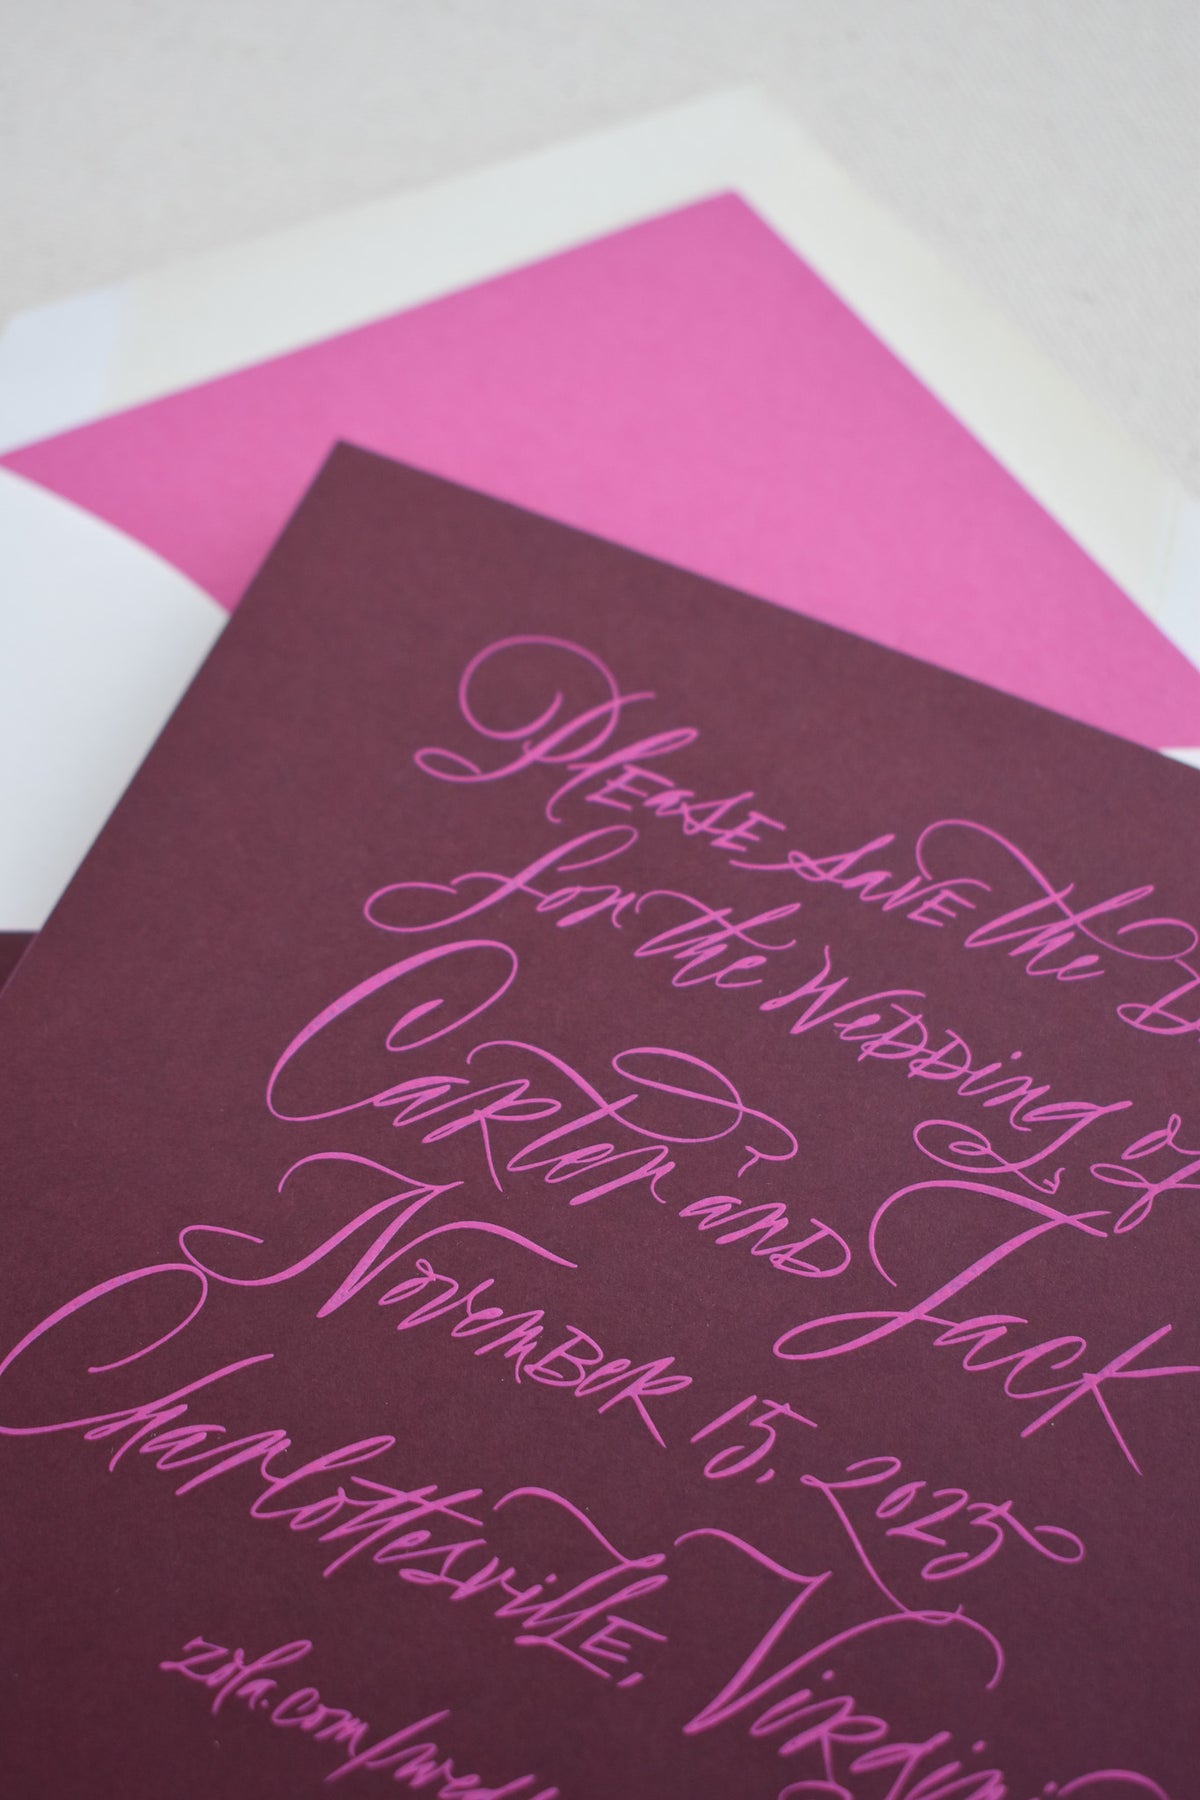 Please save the D
for the Wedding of
Carter and Jack
November 15, 2025
Charlottesville, Virgini
zola.com/wedd